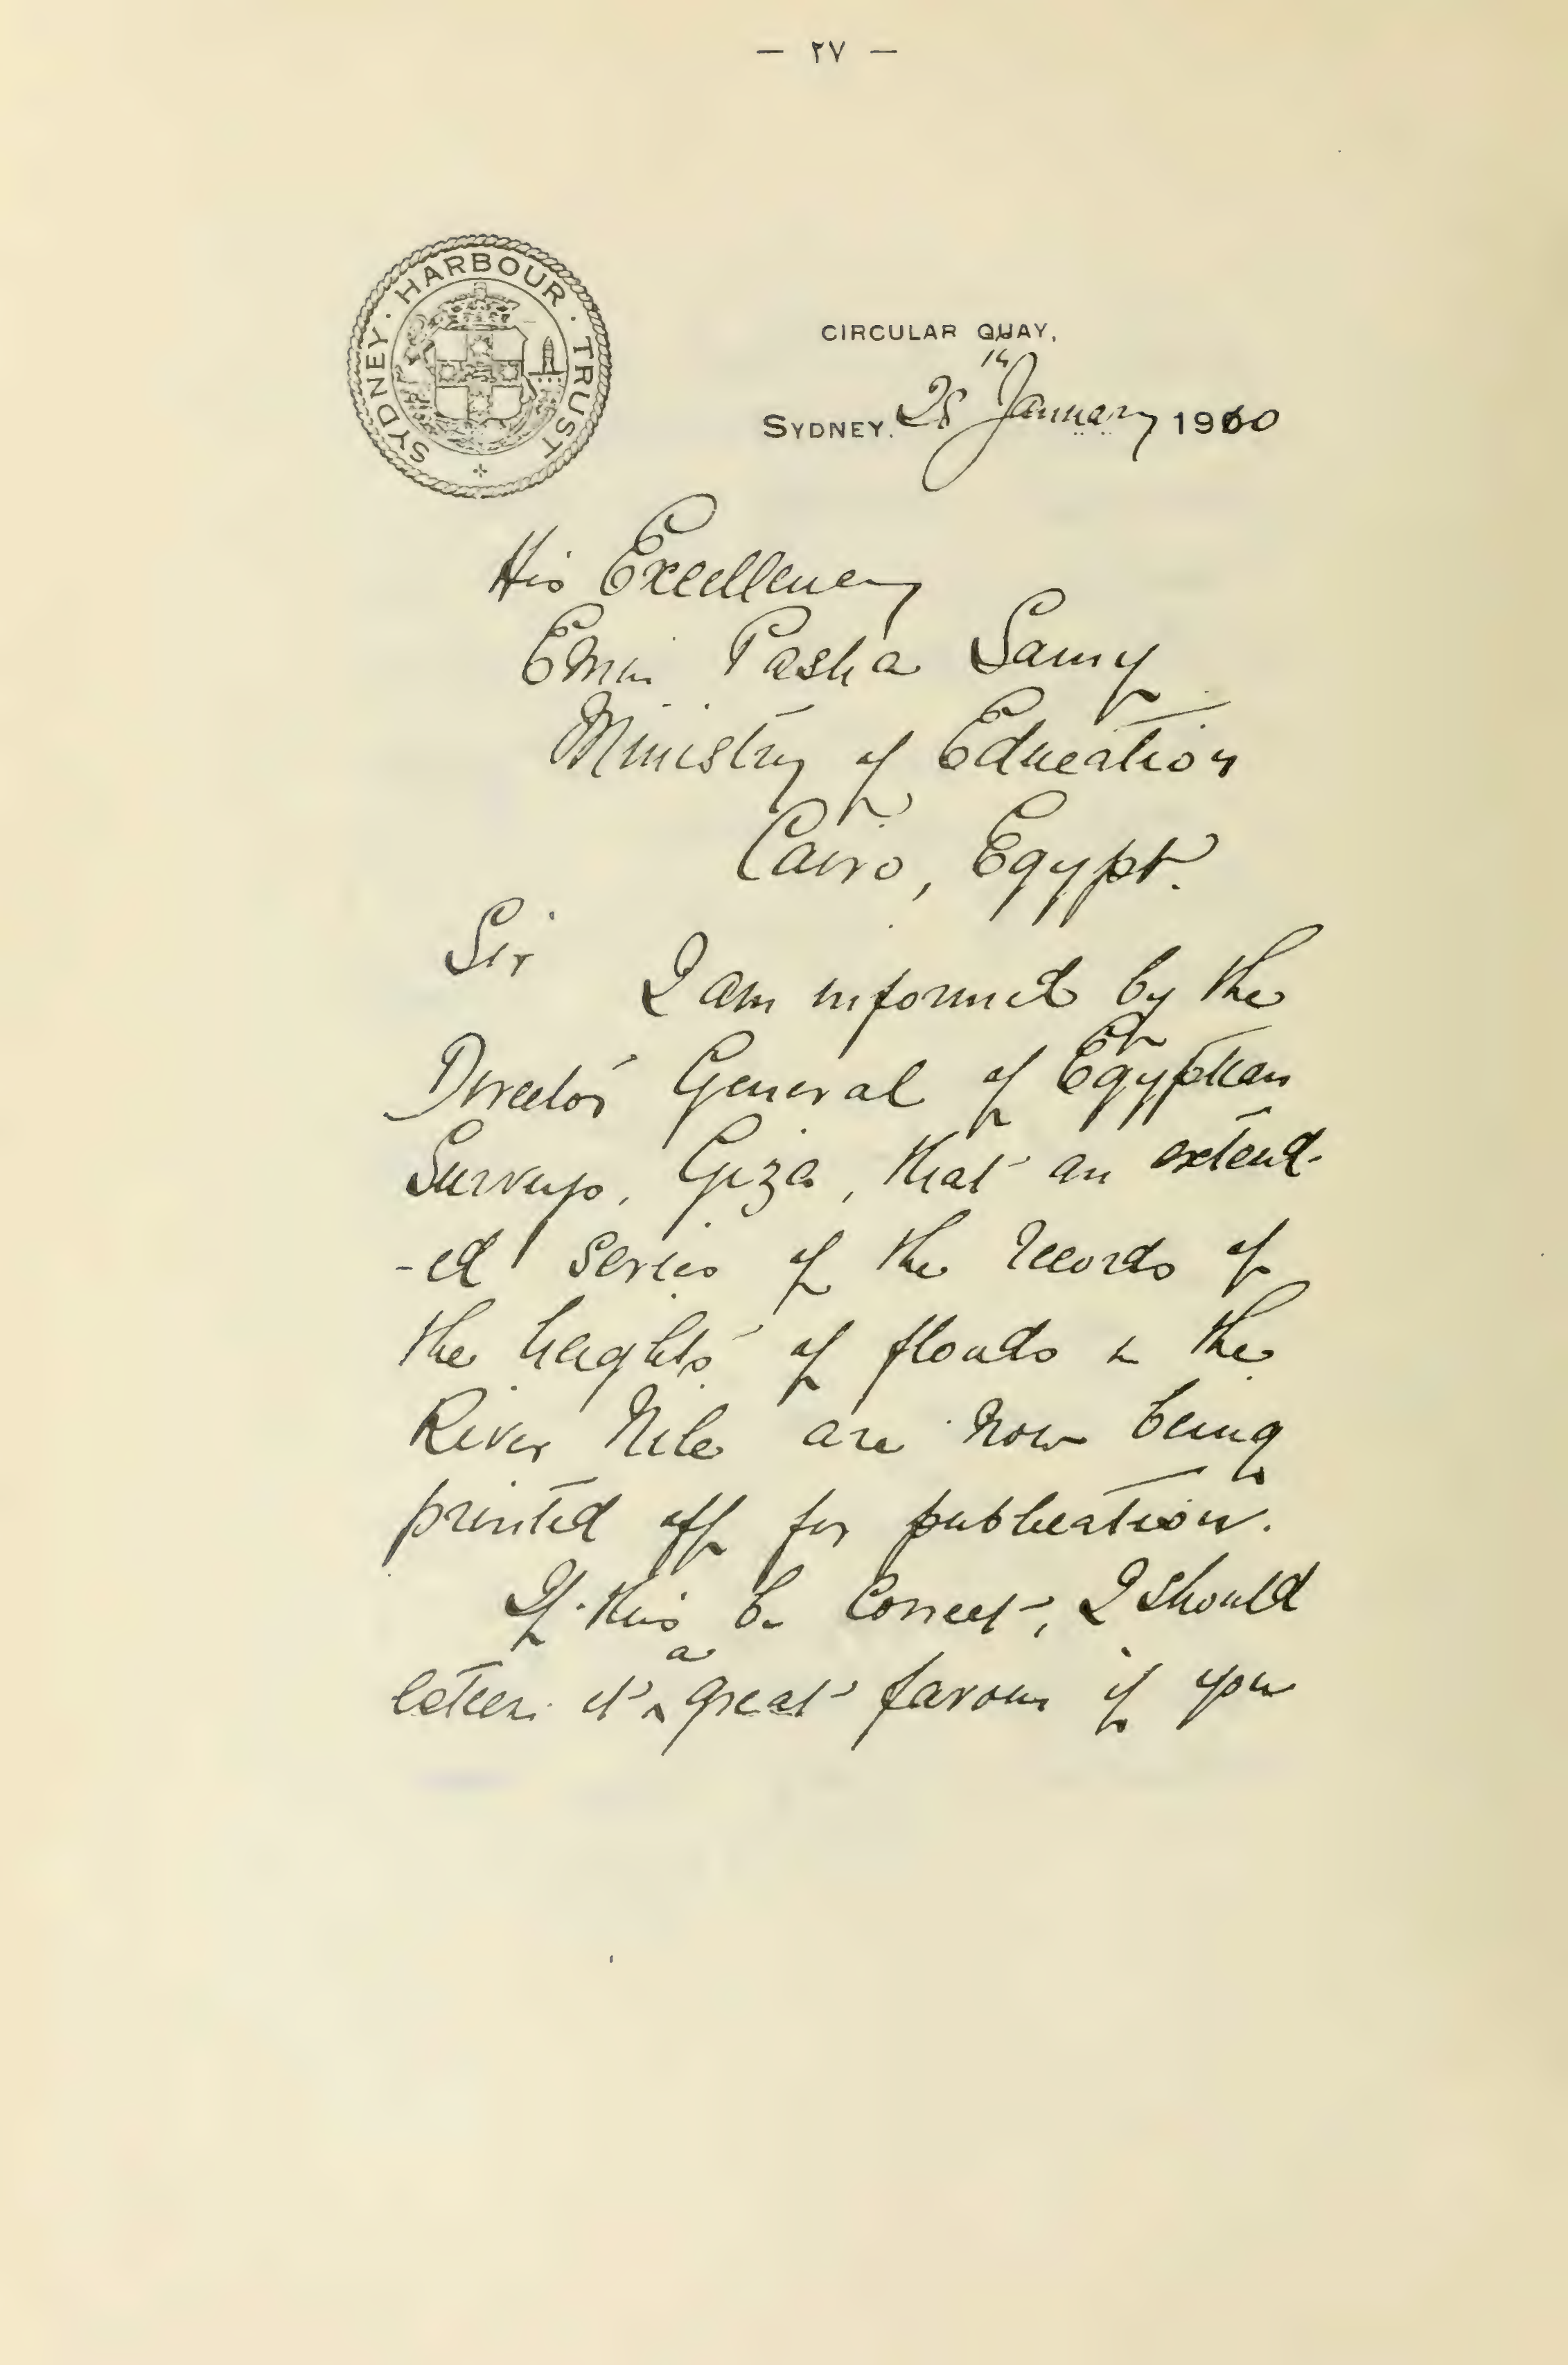 — ٢٧ —
SYDNEY · HARBOUR · TRUST
CIRCULAR QUAY,
SYDNEY. 28th January 1910
His Excellency
Emin Pasha Samy
Ministry of Education
Cairo, Egypt.
Sir
I am informed by the
Director General of Egyptian
Surveys, Giza, that an extend-
-ed series of the records of
the heights of floods in the
River Nile are now being
printed off for publication.
If this be correct, I should
esteem it a great favour if you